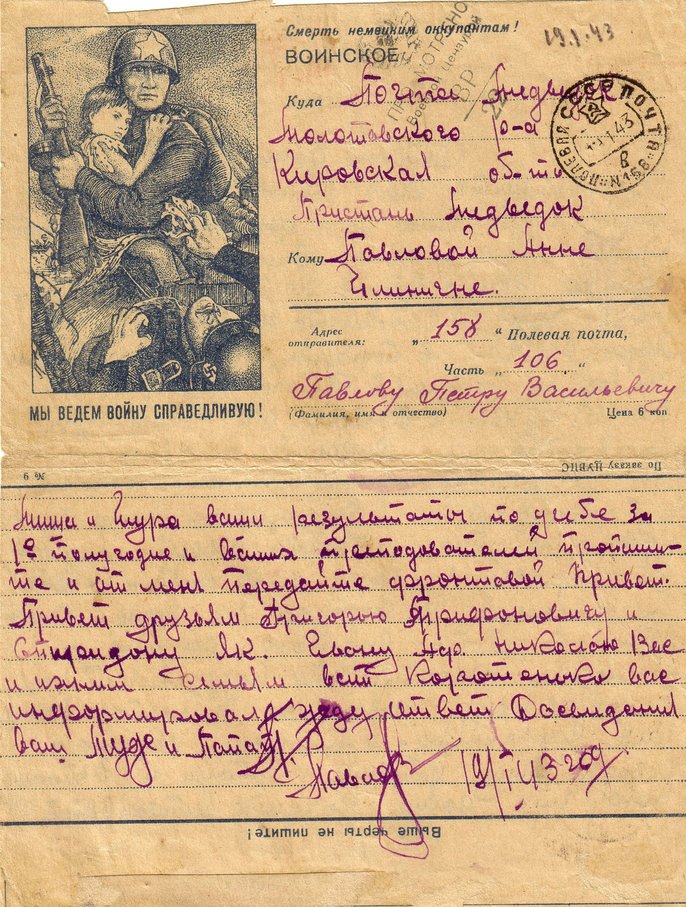 Смерть немецким оккупантам!
19.1.43
ВОИНСКОЕ
ПРОСМОТРЕНО
Военной Цензурой
Куда Почтов Медведок
Молотовского р-а
Кировская об-ть
Пристань Медведок
Кому Павловой Анне
Ильиничне.
СССР ПОЛЕВАЯ ПОЧТА
1.43
Адрес отправителя: „158“ Полевая почта,
Часть „106„
Павлову Петру Васильевичу
(Фамилия, имя и отчество) Цена 6 коп.
МЫ ВЕДЕМ ВОЙНУ СПРАВЕДЛИВУЮ!
По заказу ЦУВПС
№ 9
Миша и Шура ваши результаты по учебе за
1е полугодие и ваших преподователей пропиши-
те и от меня передайте фронтовой Кривет.
Привет друзьям Григорою Трифоновичу и
Спиридону Як. Николаю Вас
и семьям всем Коротенько вас
информировал жду ответ Досвидания
ваш Муж и Папа
Павлов 19/I 43 год
Выше черты не пишите!